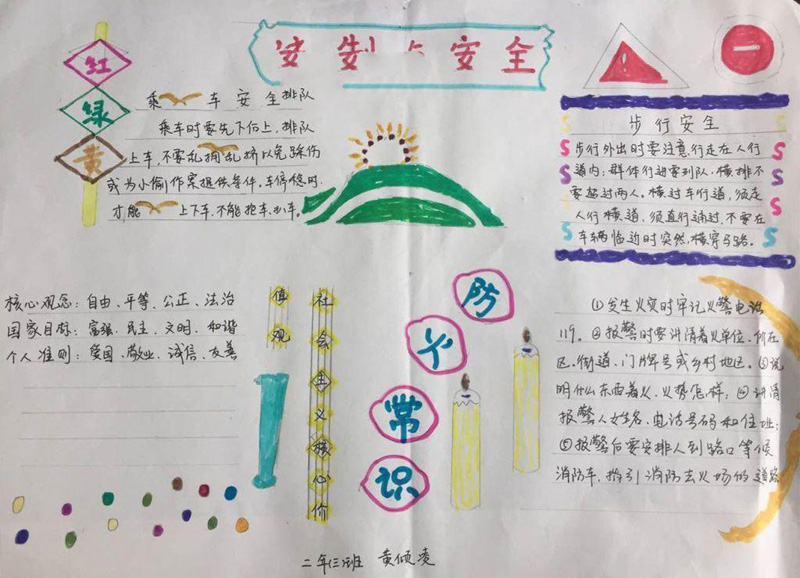 安全
红
绿
黄
乘 车安全排队
乘车时要先下后上,排队
上车,不要乱拥乱挤以免踩伤
或为小偷作案提供条件,车停稳时,
才能 上下车,不能抢车,扒车。
步行安全
步行外出时要注意行走在人行
道内,群体行进要列队,横排不
要超过两人。横过车行道,须走
人行横道,须直行通过,不要在
车辆临近时突然横穿马路。
核心观念:自由、平等、公正、法治
国家目标:富强、民主、文明、和谐
个人准则:爱国、敬业、诚信、友善
社会主义核心价
值观
防火常识
①发生火灾时牢记火警电话
119。②报警时要讲清着火单位、所在
区、街道、门牌号或乡村地区。③说
明什么东西着火,火势怎样;④讲清
报警人姓名、电话号码和住址;
⑤报警后要安排人到路口等候
消防车,指引消防去火场的道路
二年(三)班 黄倾凌